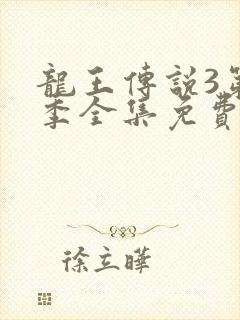 龍王傳説3第
季全集免費
徐立曄